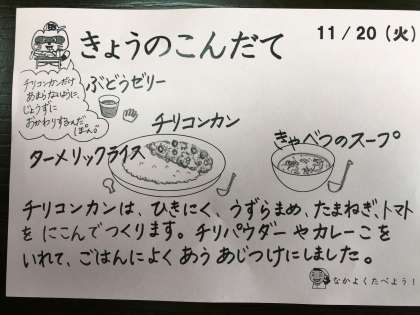 きょうのこんだて
11/20(火)
チリコンカンだけ
あまらないように、
じょうずに
おかわりするんだ
ぽん。
ぶどうゼリー
チリコンカン
ターメリックライス
きゃべつのスープ
チリコンカンは、ひきにく、うずらまめ、たまねぎ、トマト
を にこんでつくります。チリパウダー や カレーこ を
いれて、ごはんによく あう あじつけにしました。
なかよくたべよう!